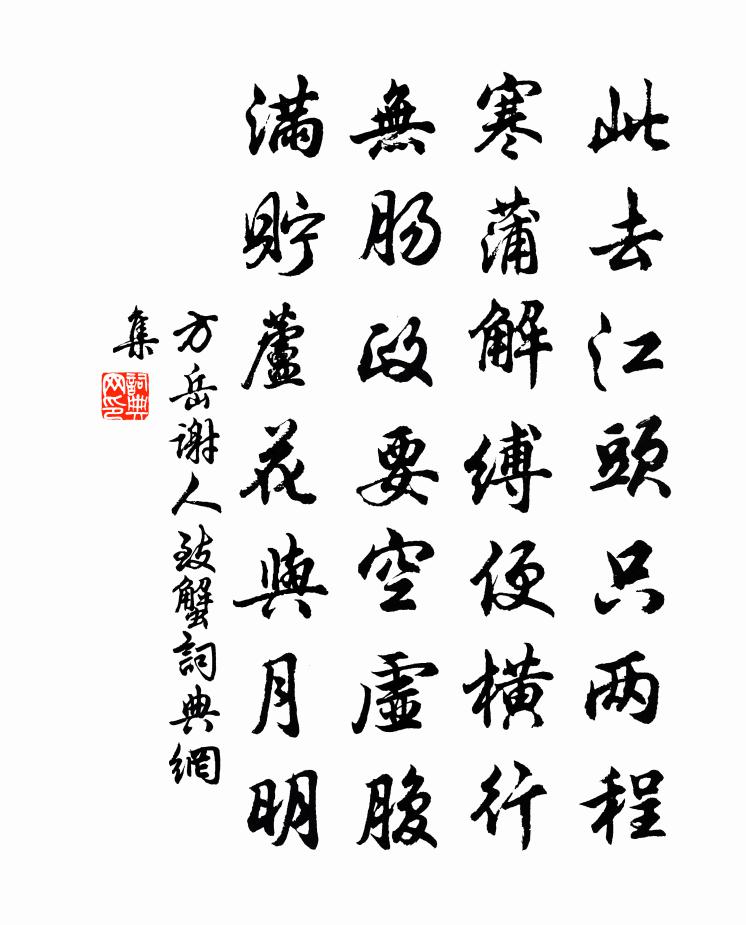 此去江頭只两程
寒蒲解縛便橫行
無肠政要空虛腹
滿貯蘆花與月明
方岳谢人致蟹詞典網
集
詞典网印